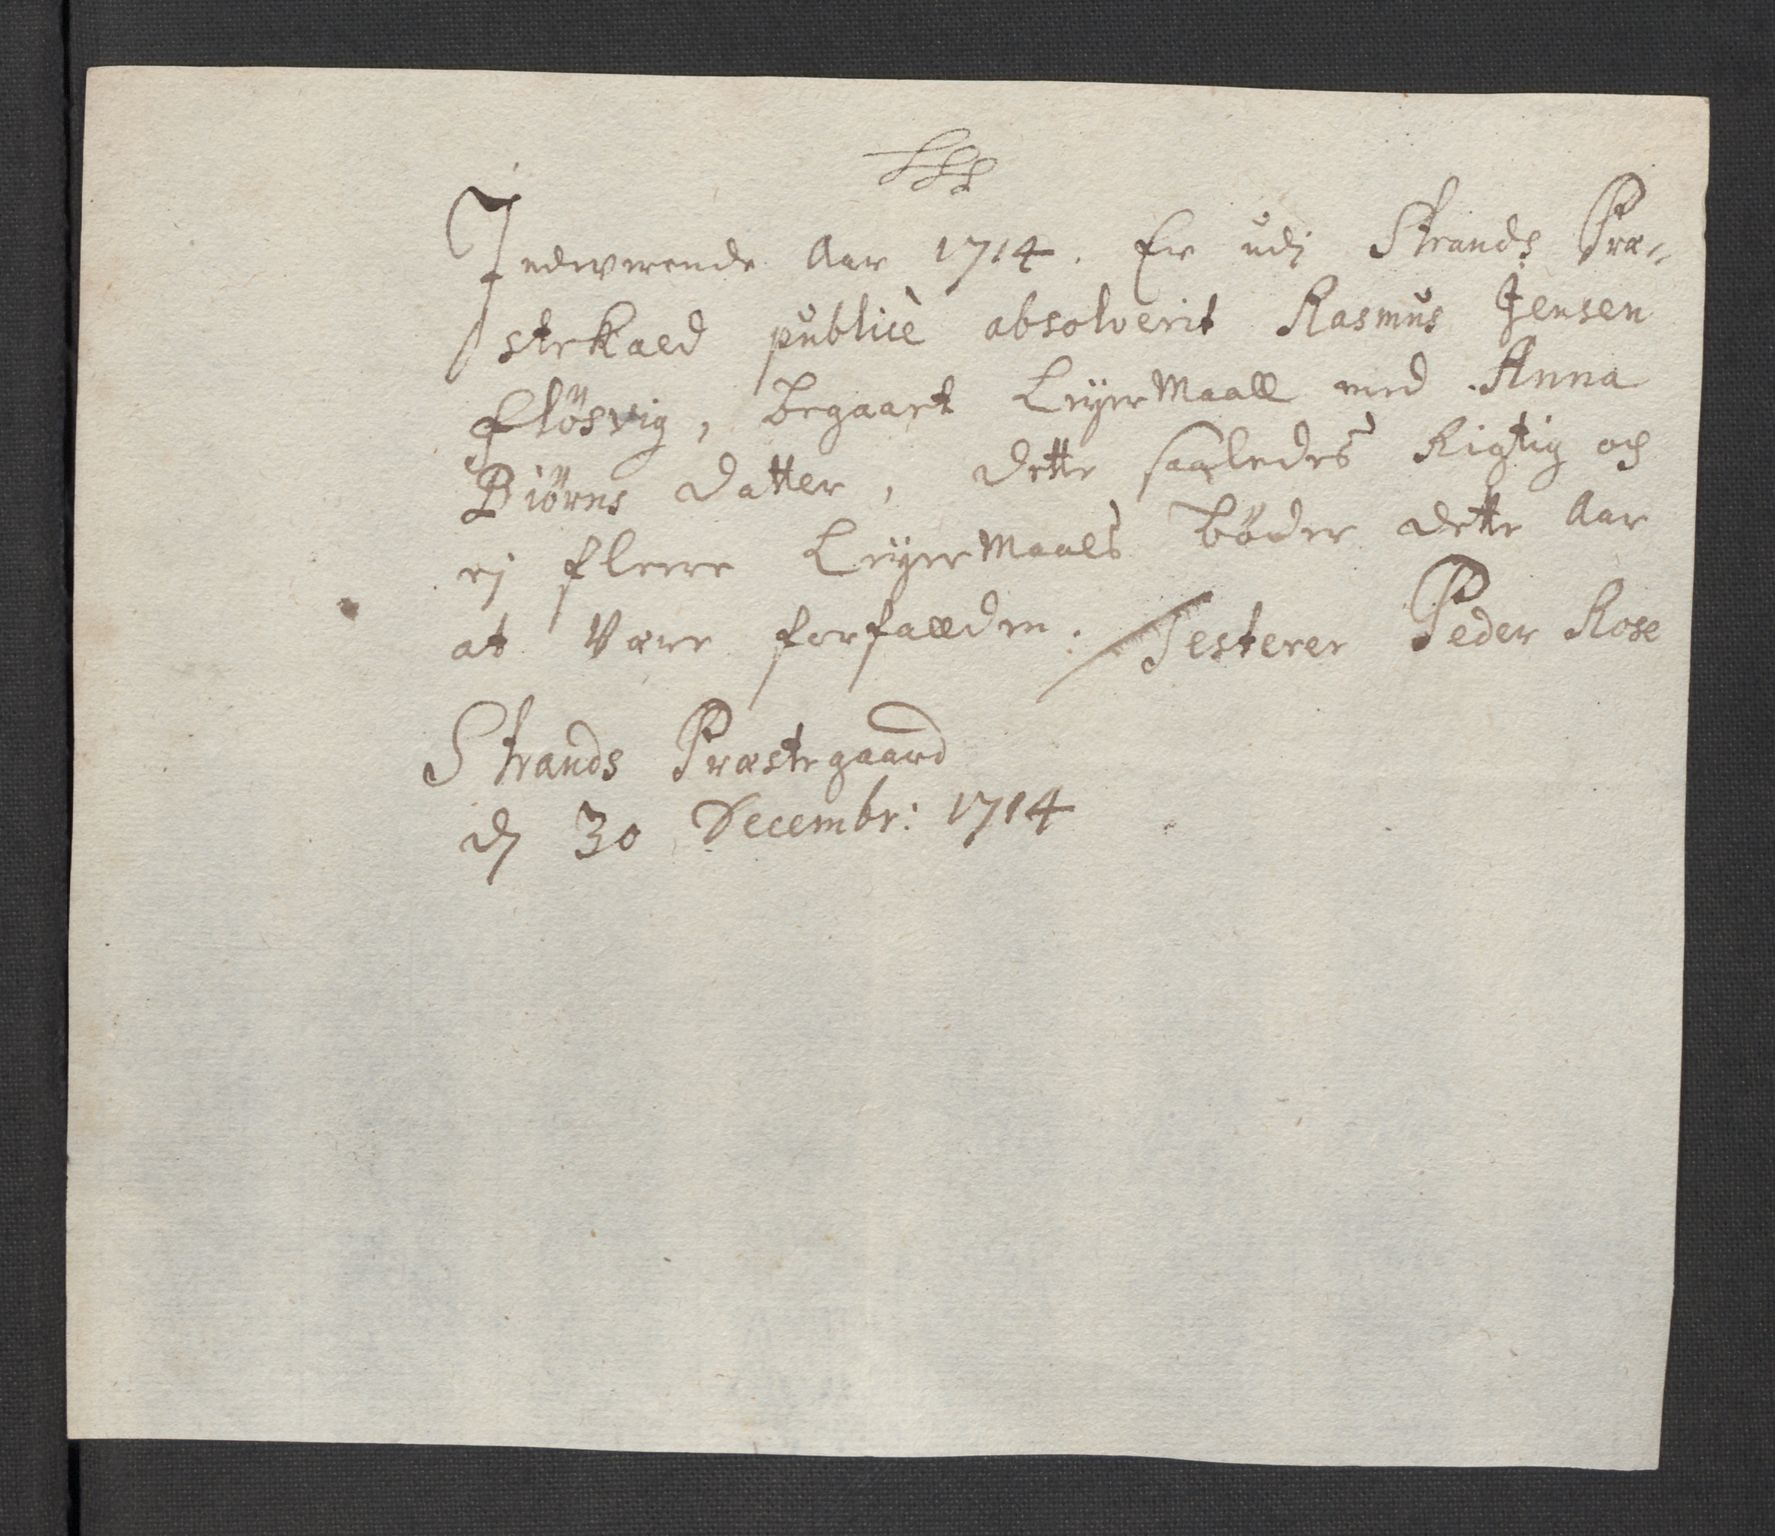 Indwerende Aar 1714. Er udj Strands Præ-
stekald publicè absolverit Rasmus Jensen
Flösvig, begaaet LeÿerMaall med Anna
Biörns datter, dette saaledes Rigtig och
ej fleere LeÿerMaals böder dette Aar
at Være forfallden. Testerer Peder Rose
Strands Præstegaard
dj 30 Decembr: 1714